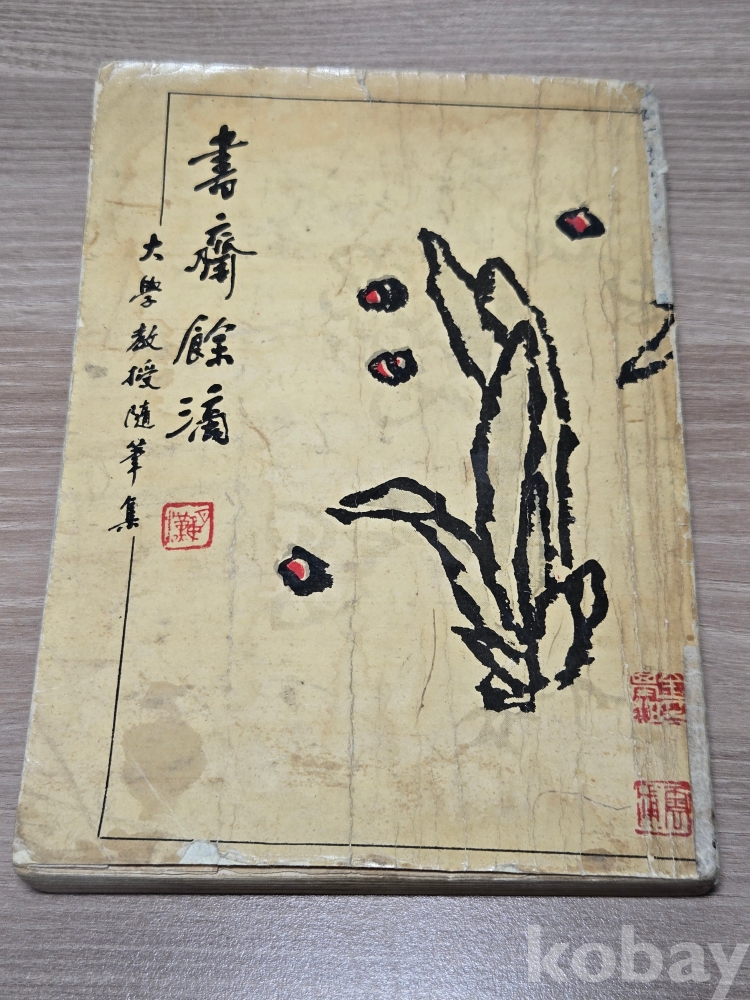 書齋餘滴
大學教授随筆集
kobay